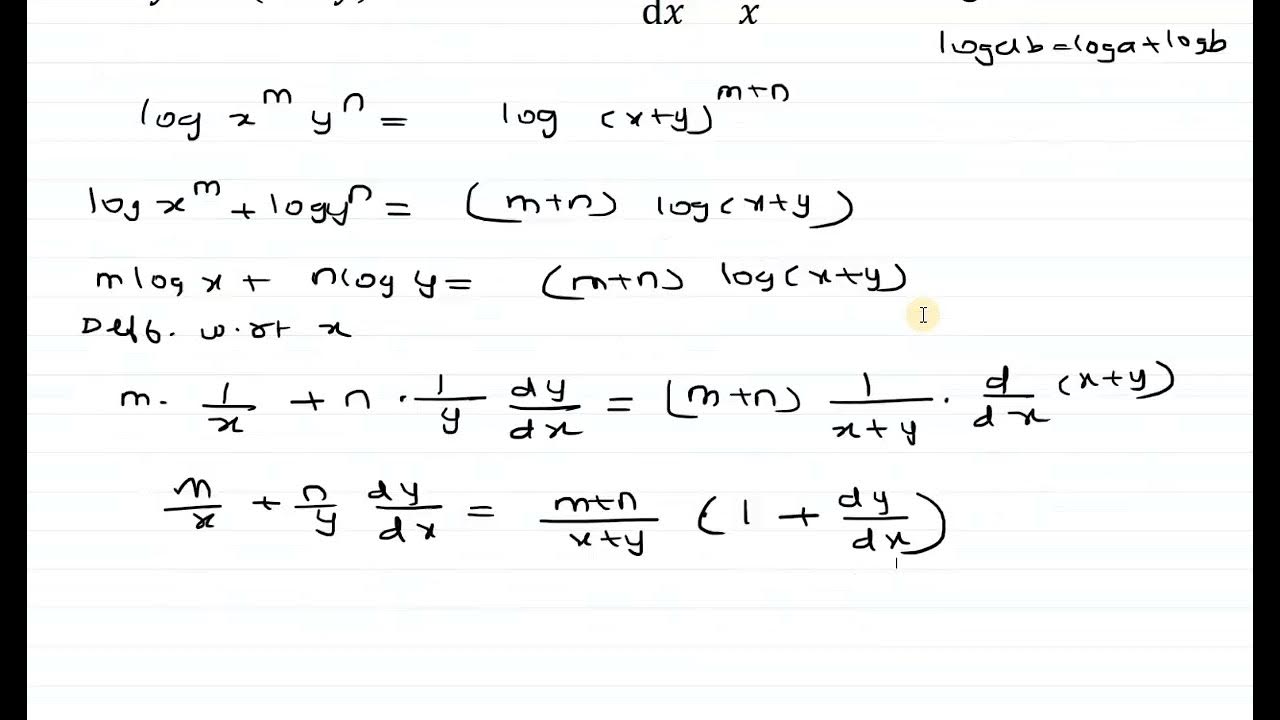 dx x
log ab = log a + log b
log x^m y^n = log (x+y)^(m+n)
log x^m + log y^n = (m+n) log (x+y)
m log x + n log y = (m+n) log (x+y)
Diff. w.r.t x
m. 1/x + n . 1/y dy/dx = (m+n) 1/(x+y) . d/dx (x+y)
m/x + n/y dy/dx = (m+n)/(x+y) (1 + dy/dx)